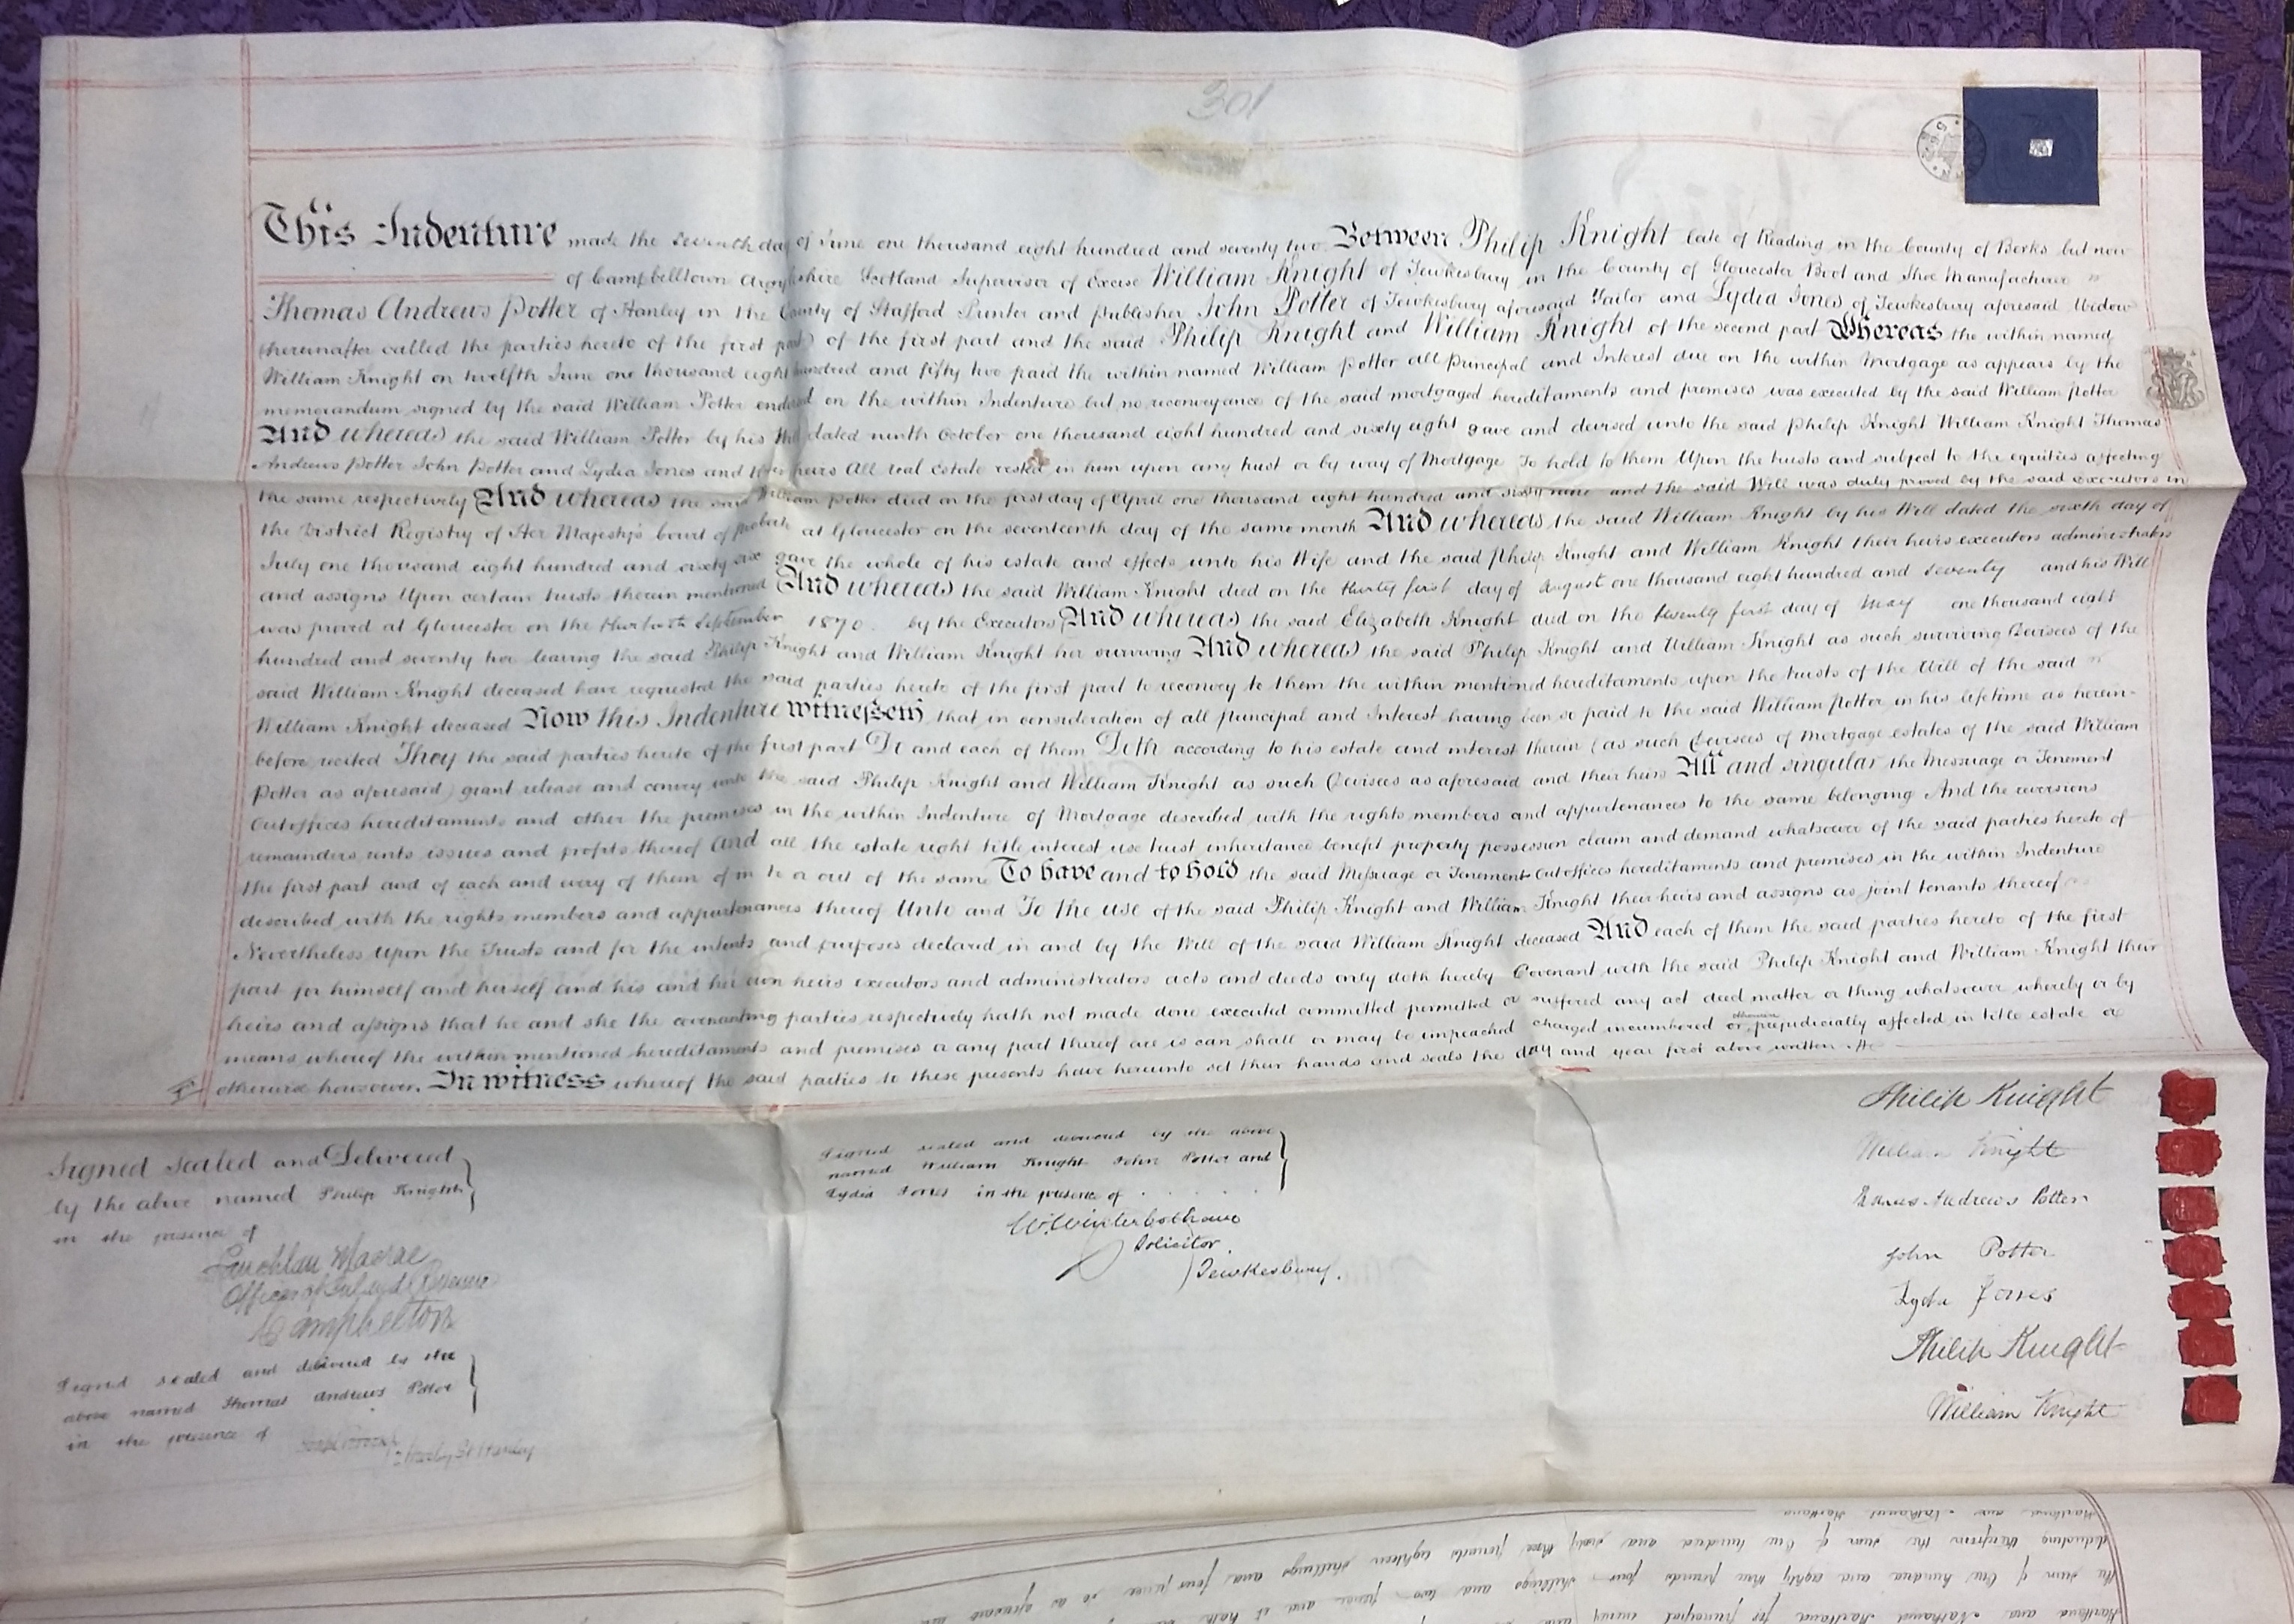 301
This Indenture made the seventh day of June one thousand eight hundred and seventy two Between Philip Knight late of Reading in the County of Berks but now
of Campbelltown Argyleshire Scotland Supervisor of Excise William Knight of Tewkesbury in the County of Gloucester Boot and Shoe Manufacturer
Thomas Andrews Potter of Hanley in the County of Stafford Printer and Publisher John Potter of Tewkesbury aforesaid Tailor and Lydia Jones of Tewkesbury aforesaid Widow
(hereinafter called the parties hereto of the first part) of the first part and the said Philip Knight and William Knight of the second part Whereas the within named
William Knight on twelfth June one thousand eight hundred and fifty two paid the within named William Potter all Principal and Interest due on the within Mortgage as appears by the
memorandum signed by the said William Potter endorsed on the within Indenture but no reconveyance of the said mortgaged hereditaments and premises was executed by the said William Potter
And whereas the said William Potter by his Will dated ninth October one thousand eight hundred and sixty eight gave and devised unto the said Philip Knight William Knight Thomas
Andrews Potter John Potter and Lydia Jones and their heirs All real Estate vested in him upon any trust or by way of Mortgage To hold to them Upon the trusts and subject to the equities affecting
the same respectively And whereas the said William Potter died on the first day of April one thousand eight hundred and sixty nine and the said Will was duly proved by the said executors in
the District Registry of Her Majesty's Court of Probate at Gloucester on the seventeenth day of the same month And whereas the said William Knight by his Will dated the sixth day of
July one thousand eight hundred and sixty six gave the whole of his estate and effects unto his Wife and the said Philip Knight and William Knight their heirs executors administrators
and assigns Upon certain trusts therein mentioned And whereas the said William Knight died on the thirty first day of August one thousand eight hundred and seventy and his Will
was proved at Gloucester on the September 1870 by the Executors And whereas the said Elizabeth Knight died on the twenty first day of May one thousand eight
hundred and seventy two leaving the said Philip Knight and William Knight her surviving And whereas the said Philip Knight and William Knight as such surviving Devisees of the
said William Knight deceased have requested the said parties hereto of the first part to reconvey to them the within mentioned hereditaments upon the trusts of the Will of the said
William Knight deceased Now this Indenture witnesseth that in consideration of all Principal and Interest having been so paid to the said William Potter in his lifetime as herein-
before recited They the said parties hereto of the first part Do and each of them Doth according to his estate and interest therein (as such Devisees of Mortgage estates of the said William
Potter as aforesaid) grant release and convey unto the said Philip Knight and William Knight as such Devisees as aforesaid and their heirs All and singular the Messuage or Tenement
Outoffices hereditaments and other the premises in the within Indenture of Mortgage described with the rights members and appurtenances to the same belonging And the reversions
remainders rents issues and profits thereof And all the estate right title interest use trust inheritance benefit property possession claim and demand whatsoever of the said parties hereto of
the first part and of each and every of them of in to or out of the same To have and to hold the said Messuage or Tenement Outoffices hereditaments and premises in the within Indenture
described with the rights members and appurtenances thereof Unto and To the use of the said Philip Knight and William Knight their heirs and assigns as joint tenants thereof
Nevertheless Upon the Trusts and for the intents and purposes declared in and by the Will of the said William Knight deceased And each of them the said parties hereto of the first
part for himself and herself and his and her own heirs executors and administrators acts and deeds only doth hereby Covenant with the said Philip Knight and William Knight their
heirs and assigns that he and she the covenanting parties respectively hath not made done executed committed permitted or suffered any act deed matter or thing whatsoever whereby or by
means whereof the within mentioned hereditaments and premises or any part thereof are is can shall or may be impeached charged incumbered or otherwise prejudicially affected in title estate or
otherwise howsoever. In witness whereof the said parties to these presents have hereunto set their hands and seals the day and year first above written
Signed Sealed and Delivered
by the above named Philip Knight
in the presence of
Lauchlan Macrae
Officer of Inland Revenue
Campbelton
Signed sealed and delivered by the
above named Thomas Andrews Potter
in the presence of
Signed sealed and delivered by the above
named William Knight John Potter and
Lydia Jones in the presence of
W. Winterbotham
Solicitor
Tewkesbury.
Philip Knight
William Knight
Thomas Andrews Potter
John Potter
Lydia Jones
Philip Knight
William Knight